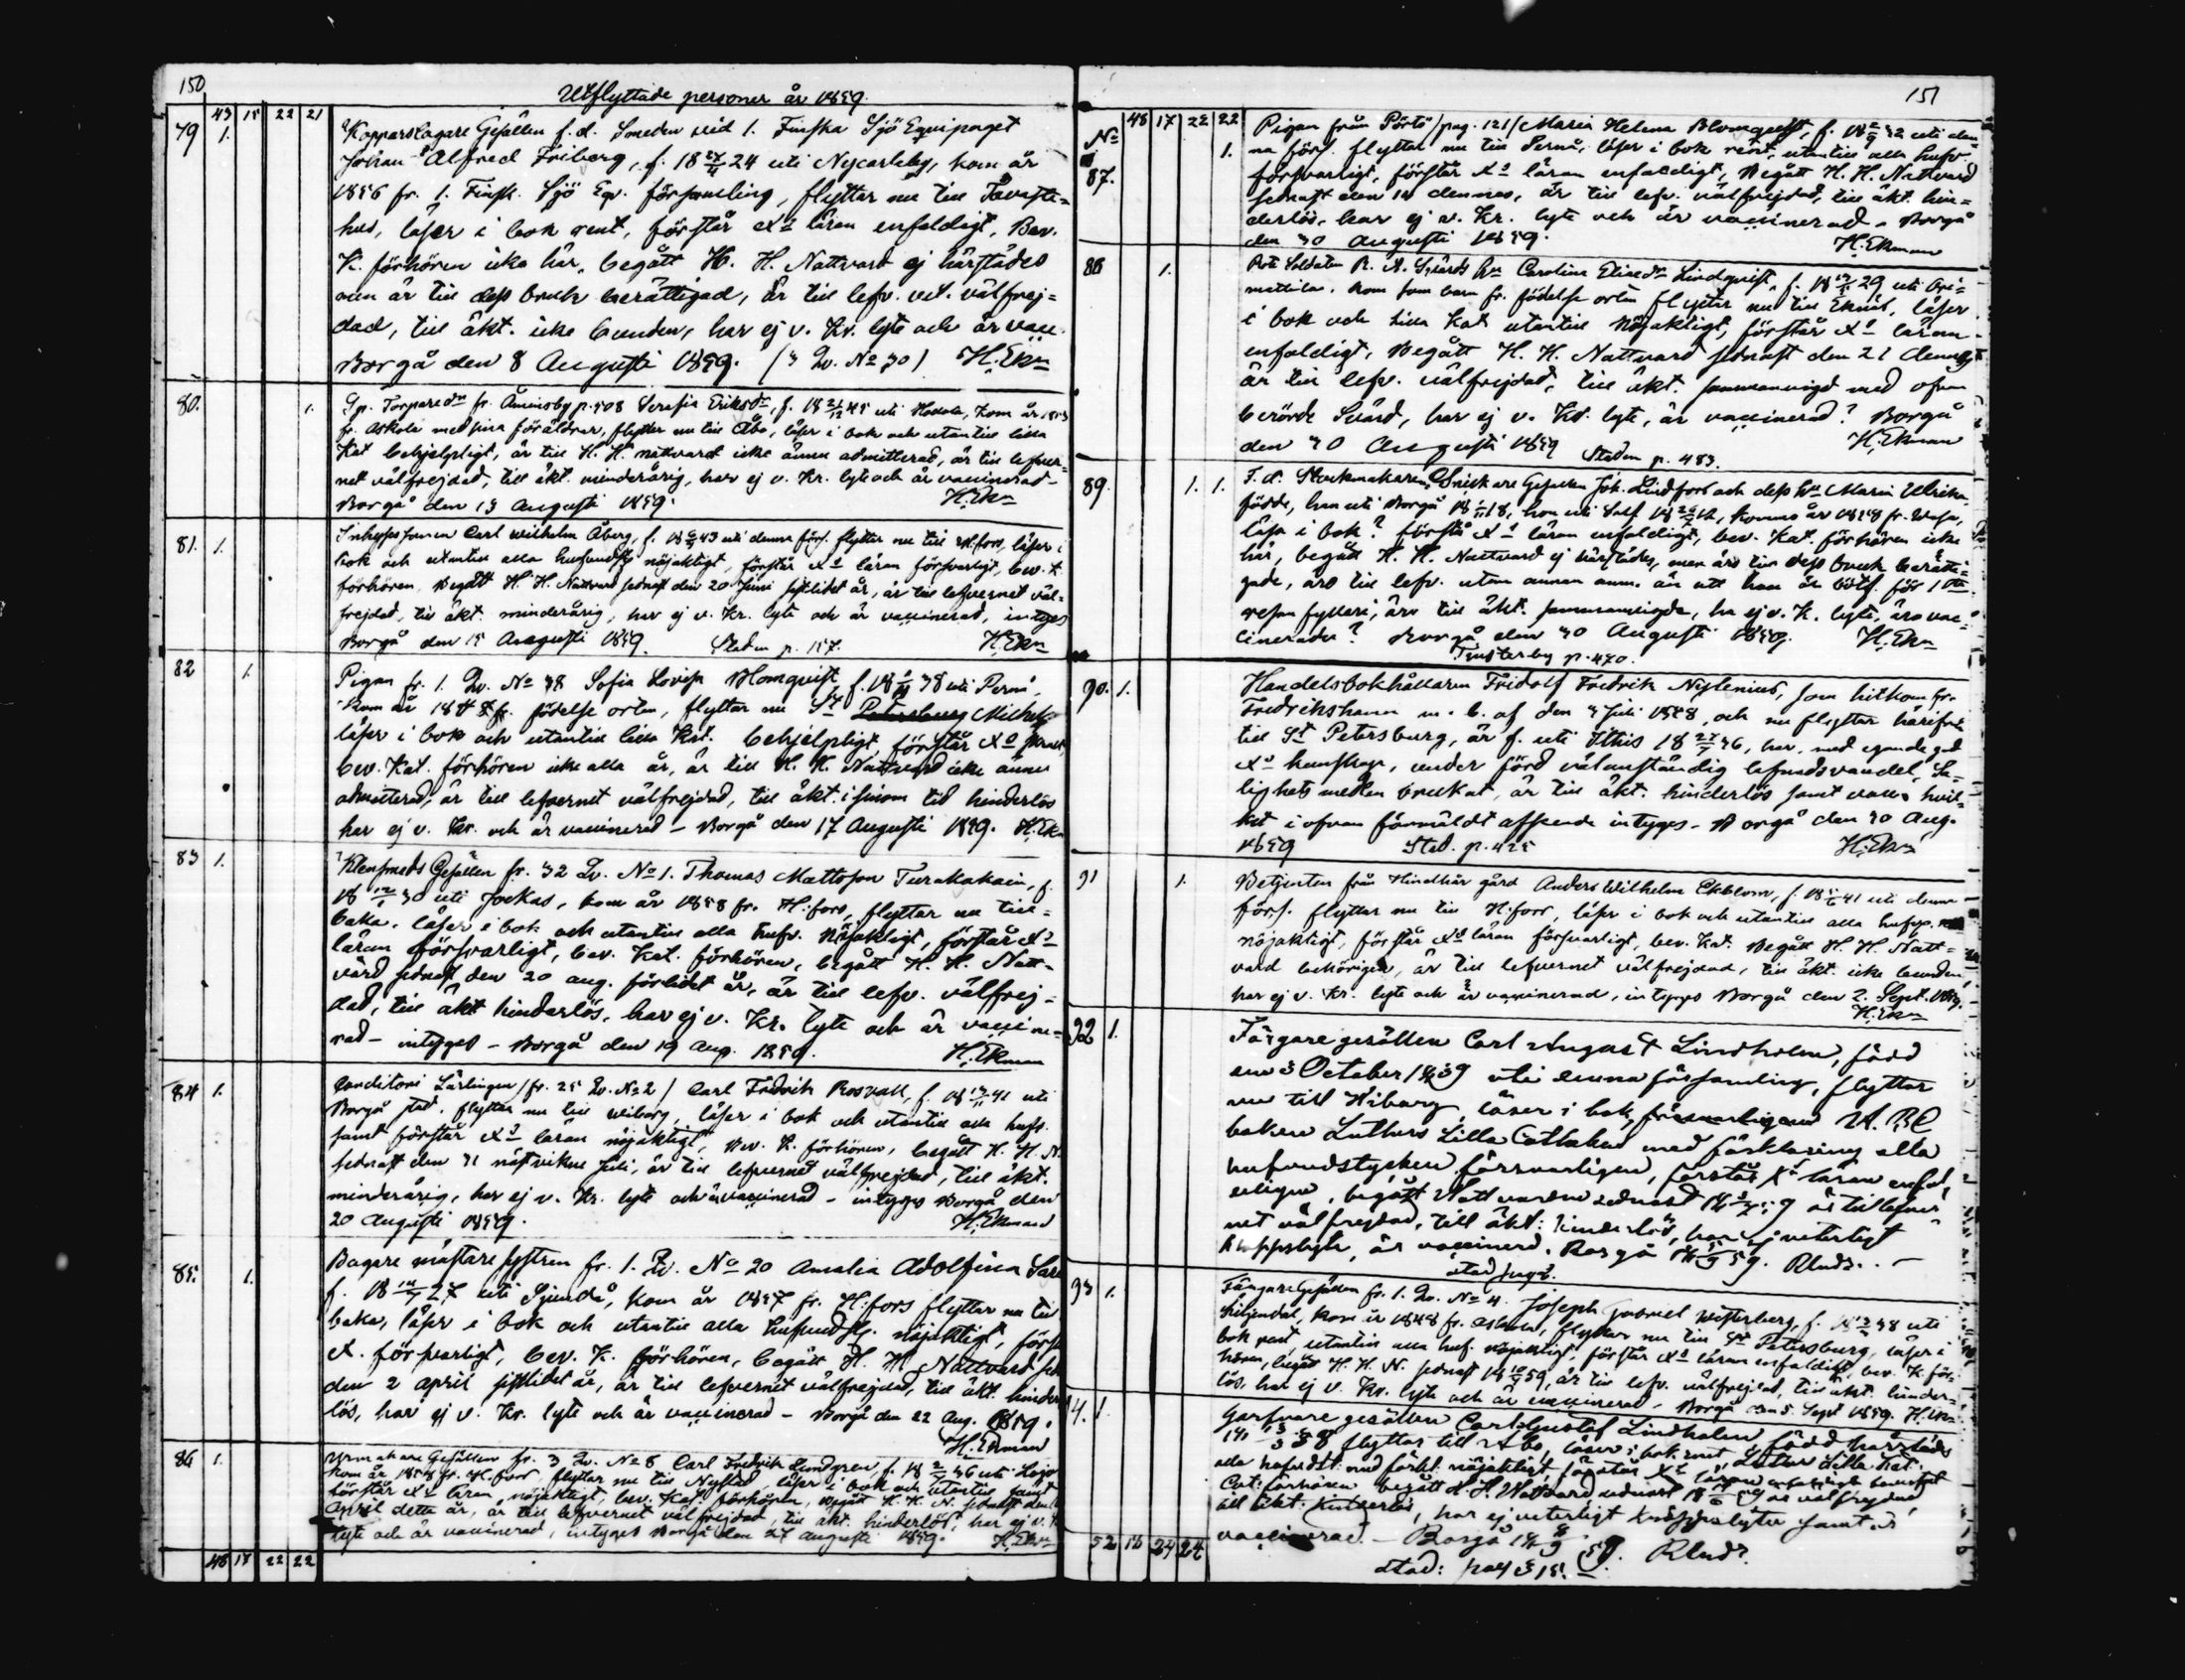 150
Utflyttade personer år 1859.
43 15 22 21
79 1. Kopparslagare Gesällen f.d. Smeden vid 1. Finska Sjö Equipaget
Johan Alfred Friberg, f. 18 24 uti Nycarleby, kom år
1856 fr. 1. Finsk. Sjö Eqv. församling, flyttar nu till Tavaste=
hus, läser i bok rent, förstår Xi läran enfaldigt, Bev.
K. förhören icke här, begått H. H. Nattvard ej härstädes
men är till dess bruk berättigad, är till lefv. vet. välfrej=
dad, till äkt. icke bunden, har ej v. Kr. lyte och är vacc.
Borgå den 8 Augusti 1859. (3 Qv. No 30) H. Ekn
80. 1. Torparedr fr. Åminsby p. 508 Serafia Eriksdr, f. 18 45 uti, kom år
fr. Askola med sina föräldrar, flyttar nu till Åbo, läser i bok och utantill lilla
Kat behjelpligt, är till H. H. nattvard icke ännu admitterad, är till lefver=
net välfrejdad, till äkt. minderårig, har ej v. Kr. lyte och är vaccinerad
Borgå den 13 Augusti 1859. H. Ekn
81. 1. Carl Wilhelm Åberg, f. 18 43 uti denna förs. flyttar nu till H:fors, läser i
bok och utantill alla hufvudst. nöjaktigt, förstår Xi läran försvarligt, bev. K.
förhören, Begått H. H. Nattvard sednast den 20 Juni sistlidet år, är till lefvernet väl=
frejdad, till äkt. minderårig, har ej v. Kr. lyte och är vaccinerad, intyges
Borgå den 15 Augusti 1859. Staden p. 157. H. Ekn
82 1. Pigan fr. 1. Qv. No 38 Sofia Lovisa Blomqvist f. 18 38 uti Perno,
kom år fr. födelse orten, flyttar nu St Petersburg Michels
läser i bok och utantill lilla Kat. behjelpligt, förstår Xi
bev. Kat. förhören icke alla år, är till H. H. Nattvard icke ännu
admitterad, är till lefvernet välfrejdad, till äkt. i sinom tid hinderlös
har ej v. Kr. och är vaccinerad – Borgå den 17 Augusti 1859. H. Ekn
83 1. Klensmeds Gesällen fr. 32 Qv. No 1. Thomas Mattsson Turakakain, f.
18 30 uti Jockas, kom år 1858 fr. H:fors, flyttar nu till=
baka, läser i bok och utantill alla hufv. nöjaktigt, förstår Xi
läran försvarligt, bev. Kat. förhören, begått H. H. Natt=
vard sednast den 20 aug. förlidet år, är till lefv. välfrej=
dad, till äkt hinderlös, har ej v. Kr. lyte och är vaccine=
rad – intyges – Borgå den 19 Aug. 1859. H. Ekman
84 1. Conditori Lärlingen (fr. 25 Qv. No 2) Carl Fredrik Rosvall, f. 18 41 uti
Borgå stad, flyttar nu till Wiborg, läser i bok och utantill alla hufv.
samt förstår Xi läran nöjaktigt, Bev. K. förhören, begått H. H. N.
sednast den 31 nästvikne Juli, är till lefvernet välfrejdad, till äkt.
minderårig, har ej v. Kr. lyte och är vaccinerad – intyges Borgå den
20 Augusti 1859. H. Ekman
85. 1. Bagare mästare systren fr. 1. Qv. No 20 Amalia Adolfina
f. 18 27 uti Sjundå, kom år 1857 fr. H:fors flyttar nu till
baka, läser i bok och utantill alla hufvudst. nöjaktigt, förstår
X. försvarligt, bev. K. förhören, begått H. H. Nattvard sed
den 2 april sistlidet år, är till lefvernet välfrejdad, till äkt. hinder
lös, har ej v. Kr. lyte och är vaccinerad – Borgå den 22 Aug. 1859.
H. Ekman
86 1. Urmakare Gesällen fr. 3 Qv. No 8 Carl Fredrik Lundgren, f. 18 36 uti Lojo
kom år 1858 fr. H:fors flyttar nu till Nystad, läser i bok och utantill samt
förstår Xi läran nöjaktigt, bev. Kat. förhören, begått H. H. N. sednast den
April detta år, är till lefvernet välfrejdad, till äkt. hinderlös, har ej v. K.
lyte och är vaccinerad, intyges Borgå den 27 augusti 1859. H. Ekn
48 17 22 22
151
No 48 17 22 22
87. 1. Pigan från Pörtö (pag. 121) Maria Helena Blomqvist, f. 18 32 uti den=
na förs. flyttar nu till Pernå, läser i bok rent, utantill alla hufv.
försvarligt, förstår Xi läran enfaldigt, Begått H. H. Nattvard
sednast den 14 dennes, är till lefv. välfrejdad, till äkt. hin=
derlös, har ej v. Kr. lyte och är vaccinerad – Borgå
den 30 Augusti 1859. H. Ekman
88 1. Rote Soldaten R. A. Svärds hu Carolina Elisedr Lindqvist, f. 18 29 uti Ori=
mattila, kom som barn fr. födelse orten flyttar nu till Eknäs, läser
i bok och lilla Kat utantill nöjaktigt, förstår Xi läran
enfaldigt, Begått H. H. Nattvard sednast den 21 dennes,
är till lefv. välfrejdad, till äkt. sammanvigd med ofvan
berörde Svärd, har ej v. Kr. lyte, är vaccinerad? Borgå
den 30 Augusti 1859 Staden p. 483. H. Ekman
89. 1. 1. F. d. Stockmakaren, Snickare Gesällen Joh. Lindfors och dess hu Maria Ulrika,
födde, han uti Borgå 18 18, hon uti Solf 18 12, komna år 1858 fr. Wasa,
läsa i bok? förstå Xi läran enfaldigt, bev. Kat. förhören icke
här, begått H. H. Nattvard ej härstädes, men äro till dess bruk berätti=
gade, äro till lefv. utan annan anm. än att han är bötf. för 1sta
resan fylleri, äro till äkt. sammanvigda, ha ej v. K. lyte, äro vac=
cinerade? Borgå den 30 Augusti 1859. H. Ekn
Tjusterby p. 470.
90. 1. Handelsbokhållaren Fridolf Fredrik Nylenius, som hitkom fr.
Fredrikshamn m. b. af den 3 Juli 1858, och nu flyttar härifrån
till St Petersburg, är f. uti Ithis 18 36, har, med egande god
Xi kunskap, under förd välanständig lefnadsvandel, Sa=
lighets medlen brukat, är till äkt. hinderlös samt vacc. hvil=
ket i ofvan förmäldt afseende intyges – Borgå den 30 Aug.
1859 Stad. p. 425 H. Ekn
91 1. Betjenten från Hindhår gård Anders Wilhelm Ekblom, f. 18 41 uti denna
förs. flyttar nu till H:fors, läser i bok och utantill alla hufv.
nöjaktigt, förstår Xi läran försvarligt, bev. Kat. Begått H. H. Natt=
vard behörigen, är till lefvernet välfrejdad, till äkt. icke bunden,
har ej v. Kr. lyte och är vaccinerad, intyges Borgå den 2. Sept. 1859.
H. Ekn
92 1. Färgare gesällen Carl August Lindholm, född
den 3 October 1839 uti denna församling, flyttar
nu till Wiborg, läser i bok, A. B. C
boken Luthers Lilla Cathekes med förklaring alla
hufvudstycken försvarligen, förstår Xi läran enfal,
deligen, begått Nattvarden sednast 18 59 är till lefver
net välfrejdad, till äkt: hinderlös, har ej veterligt
kroppslyte, är vaccinerd. Borgå 18 59.
93 1. Gesällen fr. 1. Qv. No 4. Joseph Gabriel Westerberg, f. 18 38 uti
Liljendal, kom år 1848 fr. Askola, flyttar nu till St Petersburg, läser i
bok rent, utantill alla huf. nöjaktigt, förstår Xi läran enfaldigt, bev. K. för=
hören, begått H. H. N. sednast 18 59, är till lefv. välfrejdad, till äkt. hinder=
lös, har ej v. Kr. lyte och är vaccinerad – Borgå den 5. Sept 1859. H. Ekn
4. 1. Garfvare gesällen Carl Gustaf Lindholm, född härstädes
18 38 flyttar till Åbo, läser i bok rent, Luther Lilla Kat.
alla hufvudst: med förkl. nöjaktigt, förstår Xi läran
Cat: förhören begått d. H. Nattvard sednast 18 59 är välfrejdad
till äkt. hinderlös, har ej veterligt kroppslyte samt är
vaccinerad – Borgå 18 59.
52 18 24 24